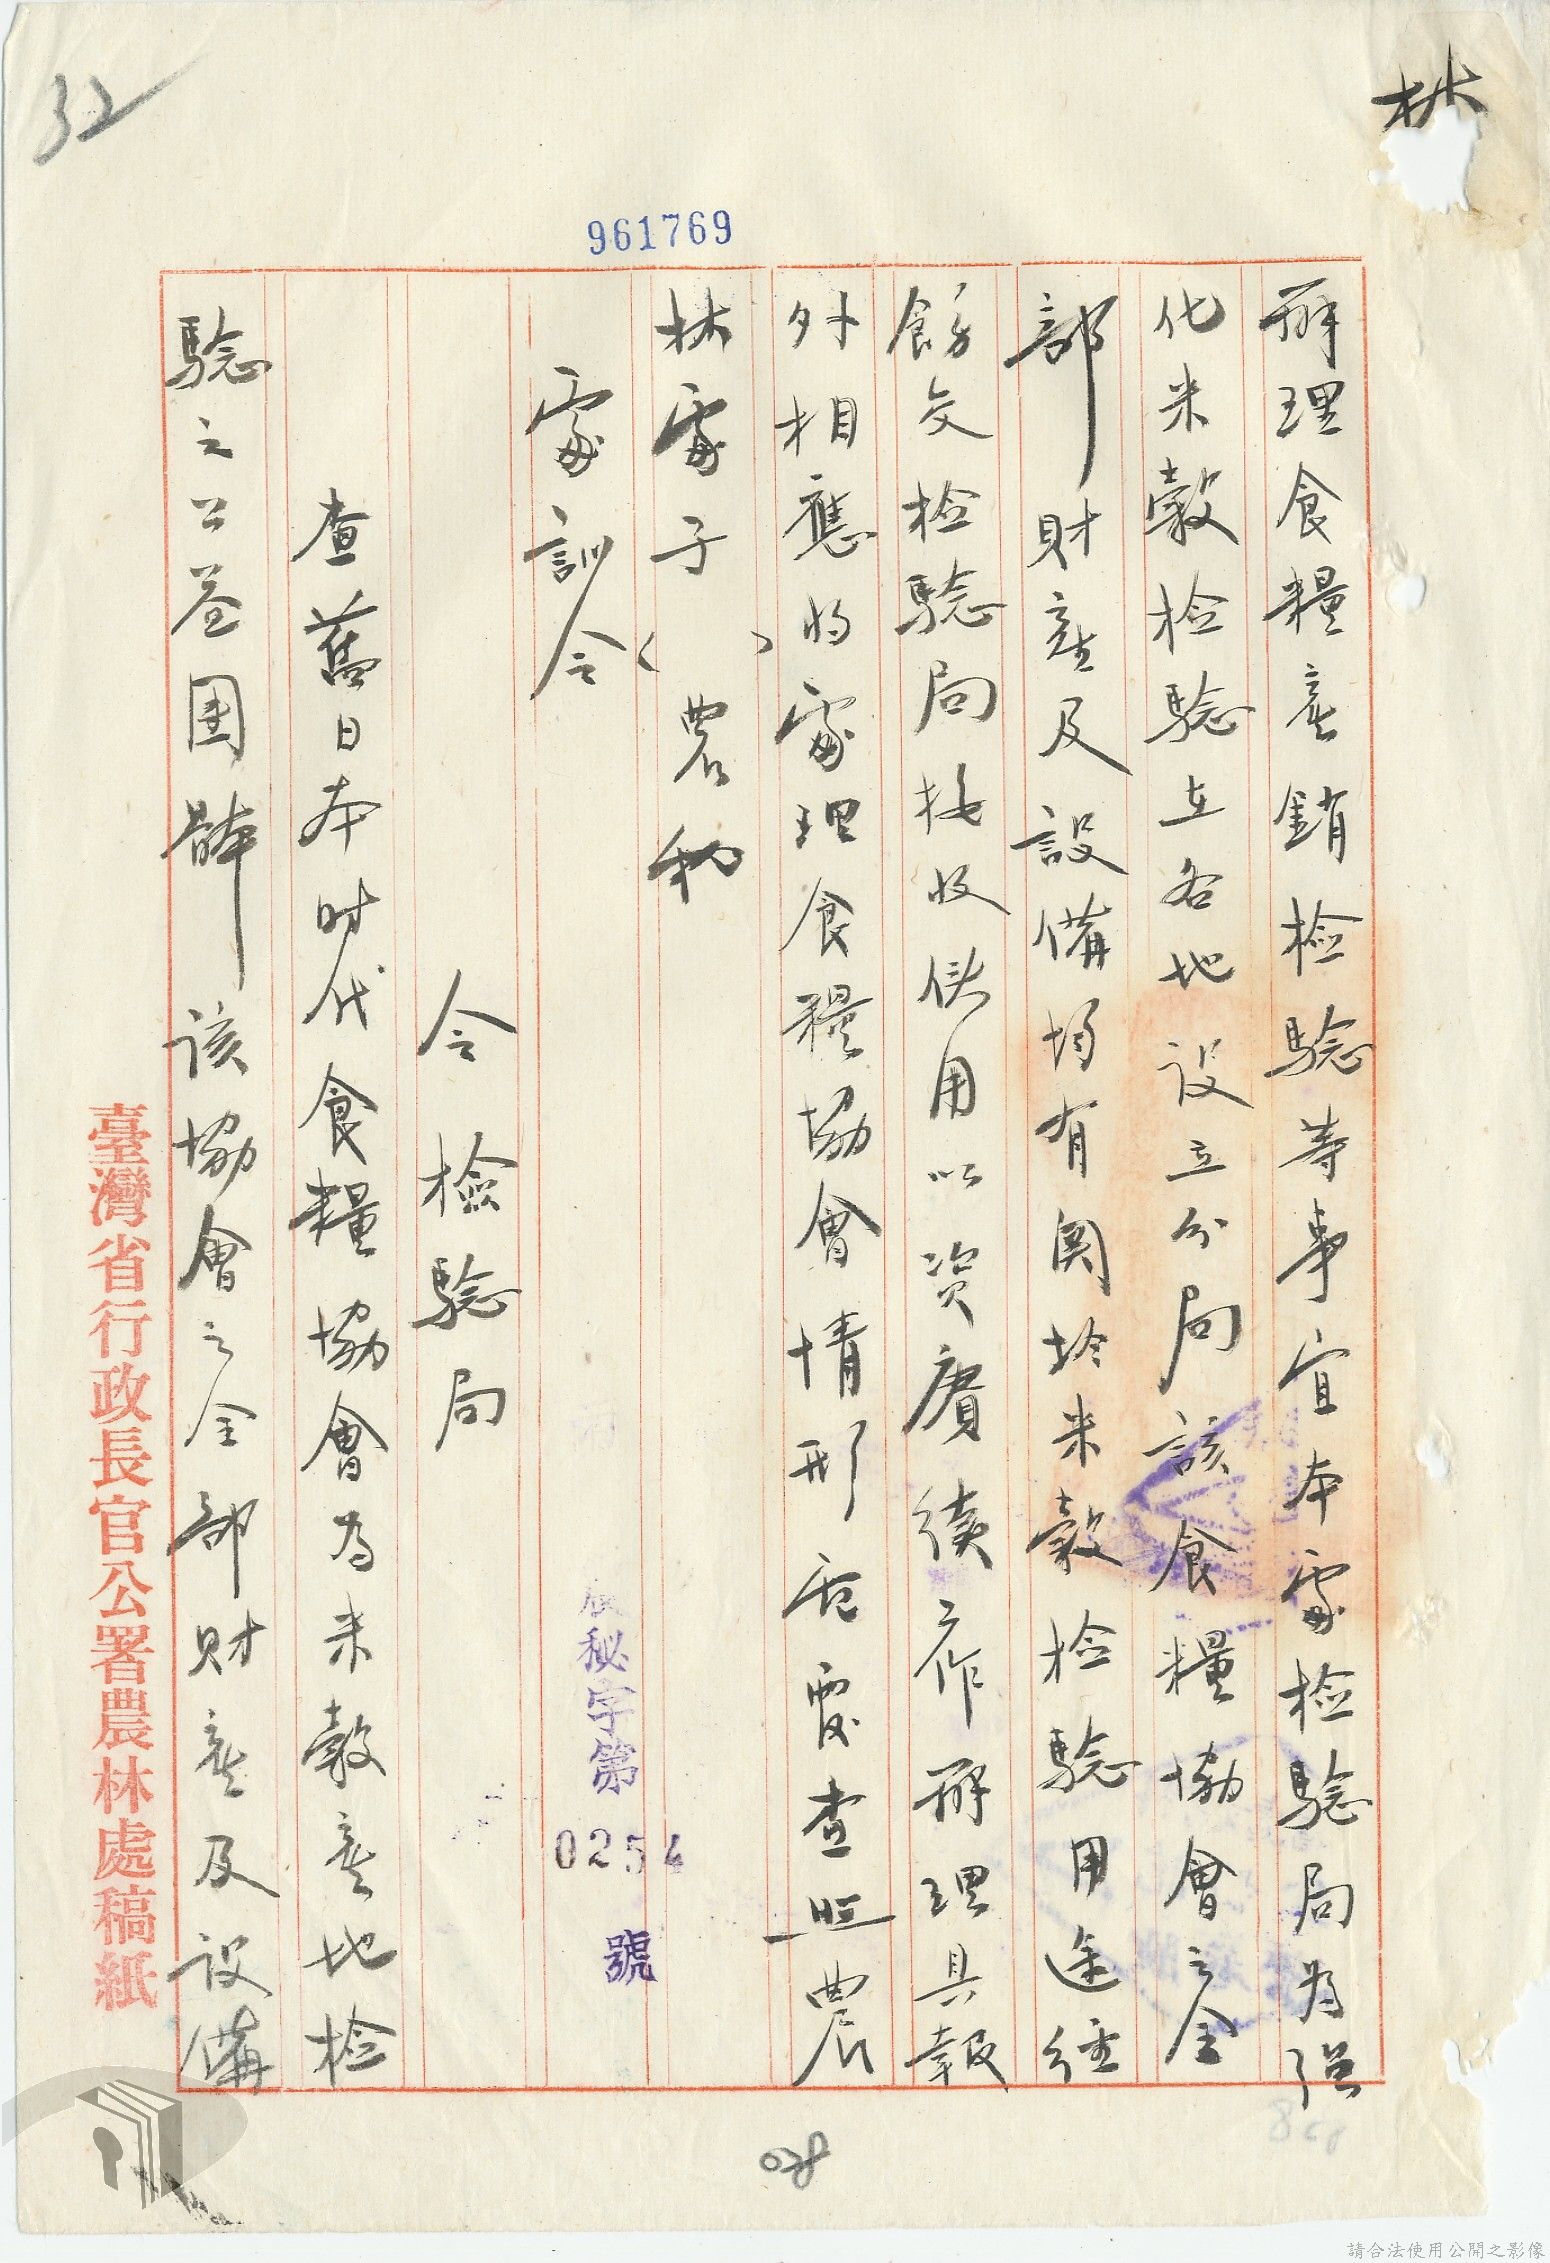 林
32
961769
辦理食糧產銷檢驗等事宜本處檢驗局為强
化米穀檢驗在各地設立分局該食糧協會之全
部財產及設備均有関於米穀檢驗用途經
飭交檢驗局接收供用以資賡續工作辦理具報
外相應將處理食糧協會情形函覆查照農
林處子（　）農秘
處訓令
農秘字第0254號
令檢驗局
查舊日本时代食糧協會為米穀產地檢
驗之公益團體該協會之全部財產及設備
臺灣省行政長官公署農林處稿紙
請合法使用公開之影像